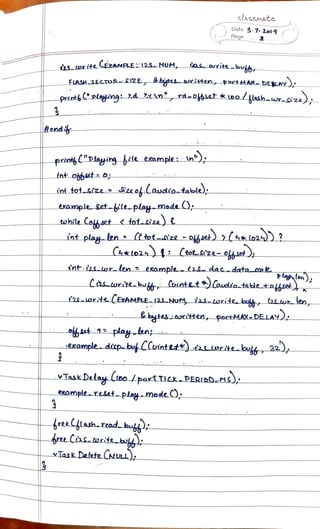 classmate
Date 3.7.2019
Page 8
i2s.write (EXAMPLE: 12S_NUM, i2s_write_buff,
FLASH_SECTOR_SIZE, & bytes_written, portMAX_DELAY);
printf ("playing: %d %%\n", rd_offset * 100 / flash_wr_size);
}
#endif
printf ("Playing file example: \n");
int offset = 0;
int tot_size = sizeof (audio_table);
example_set_file_play_mode ();
while (offset < tot_size) {
int play_len = ((tot_size - offset) > (4*1024)) ?
(4*1024) : (tot_size - offset);
int i2s_wr_len = example_i2s_dac_data_scale
(i2s_write_buff, (uint8_t*)(audio_table + offset), play_len);
i2s_write (EXAMPLE_I2S_NUM, i2s_write_buff, i2s_wr_len,
& bytes_written, portMAX_DELAY);
offset += play_len;
example_disp_buf ((uint8_t*) i2s_write_buff, 32);
}
vTaskDelay (100 / portTICK_PERIOD_MS);
example_reset_play_mode ();
}
free (flash_read_buff);
free (i2s_write_buff);
vTask Delete (NULL);
}